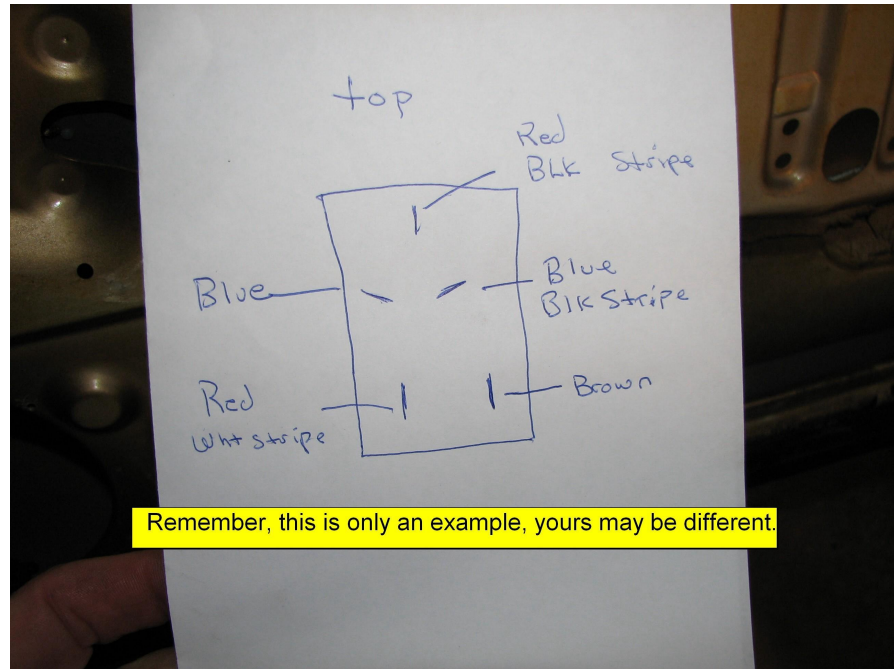 top
Red
BLK Stripe
Blue
Blue
Blk Stripe
Red
Wht stripe
Brown
Remember, this is only an example, yours may be different.